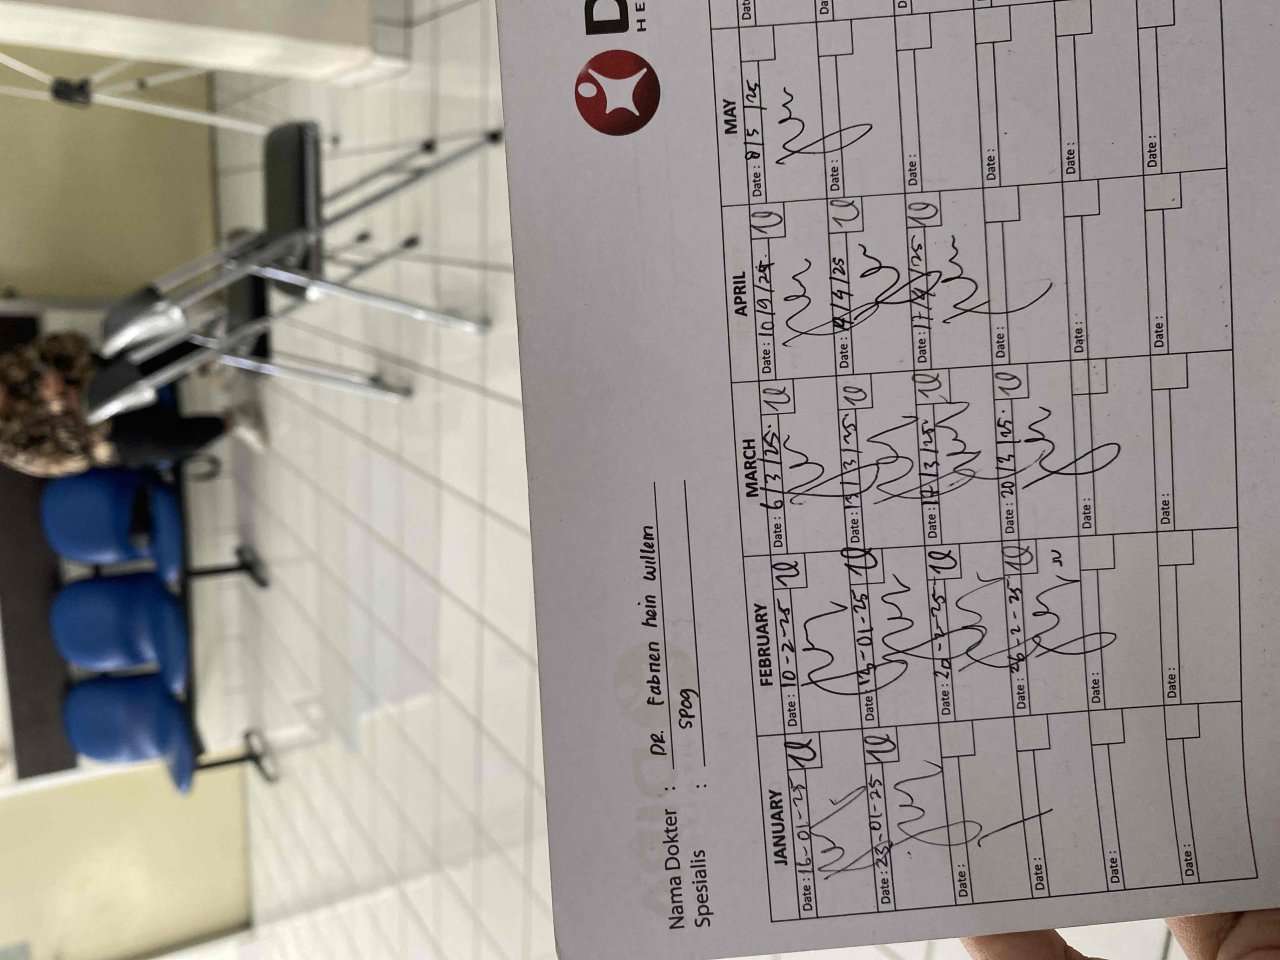 D
HE
Nama Dokter : DR. Fabrien hein willem
Spesialis : SPOG
JANUARY FEBRUARY MARCH APRIL MAY
Date : 16-01-25 Date : 10-2-25 Date : 6/3/25. Date : 10/4/25. Date : 8/5/25 Date
Date : 23-01-25 Date : 13-01-25 Date : 13/3/25. Date : /4/25 Date : Da
Date : Date : 20-2-25 Date : /3/25. Date : 17/4/25 Date : D
Date : Date : 26-2-25 Date : 20/3/25. Date : Date :
Date : Date : Date : Date : Date :
Date : Date : Date : Date : Date :